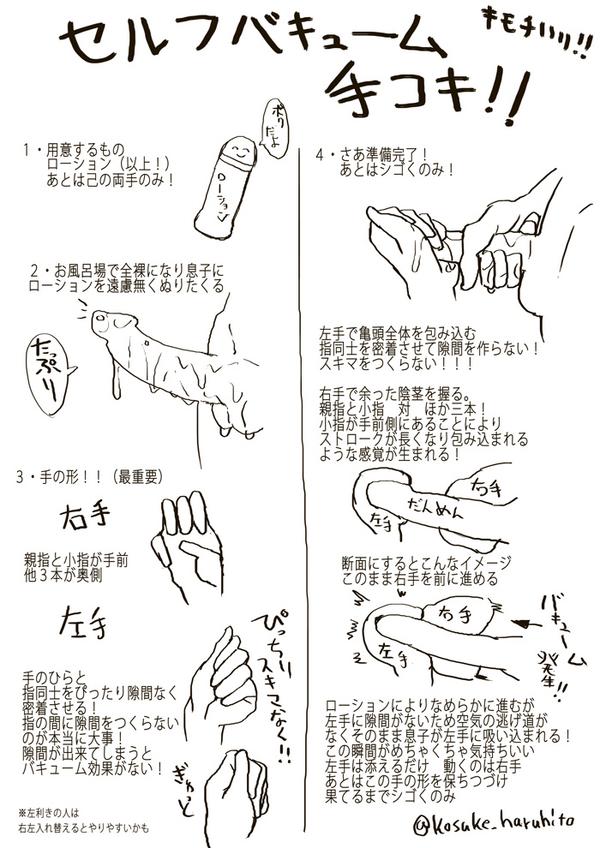 セルフバキューム
手コキ!!
キモチいい!!
1・用意するもの
ローション（以上！）
あとは己の両手のみ！
ボクだよ
ローション
2・お風呂場で全裸になり息子に
ローションを遠慮無くぬりたくる
たっぷり
3・手の形！！（最重要）
右手
親指と小指が手前
他3本が奥側
左手
手のひらと
指同士をぴったり隙間なく
密着させる！
指の間に隙間をつくらない
のが本当に大事！
隙間が出来てしまうと
バキューム効果がない！
ぴっちり
スキマなく!!
ぎゅっと
※左利きの人は
右左入れ替えるとやりやすいかも
4・さあ準備完了！
あとはシゴくのみ！
左手で亀頭全体を包み込む
指同士を密着させて隙間を作らない！
スキマをつくらない！！！
右手で余った陰茎を握る。
親指と小指　対　ほか三本！
小指が手前側にあることにより
ストロークが長くなり包み込まれる
ような感覚が生まれる！
右手
だんめん
左手
断面にするとこんなイメージ
このまま右手を前に進める
右手
左手
バキューム
発生!!
ローションによりなめらかに進むが
左手に隙間がないため空気の逃げ道が
なくそのまま息子が左手に吸い込まれる！
この瞬間がめちゃくちゃ気持ちいい
左手は添えるだけ　動くのは右手
あとはこの手の形を保ちつづけ
果てるまでシゴくのみ
@kosuke_haruhito